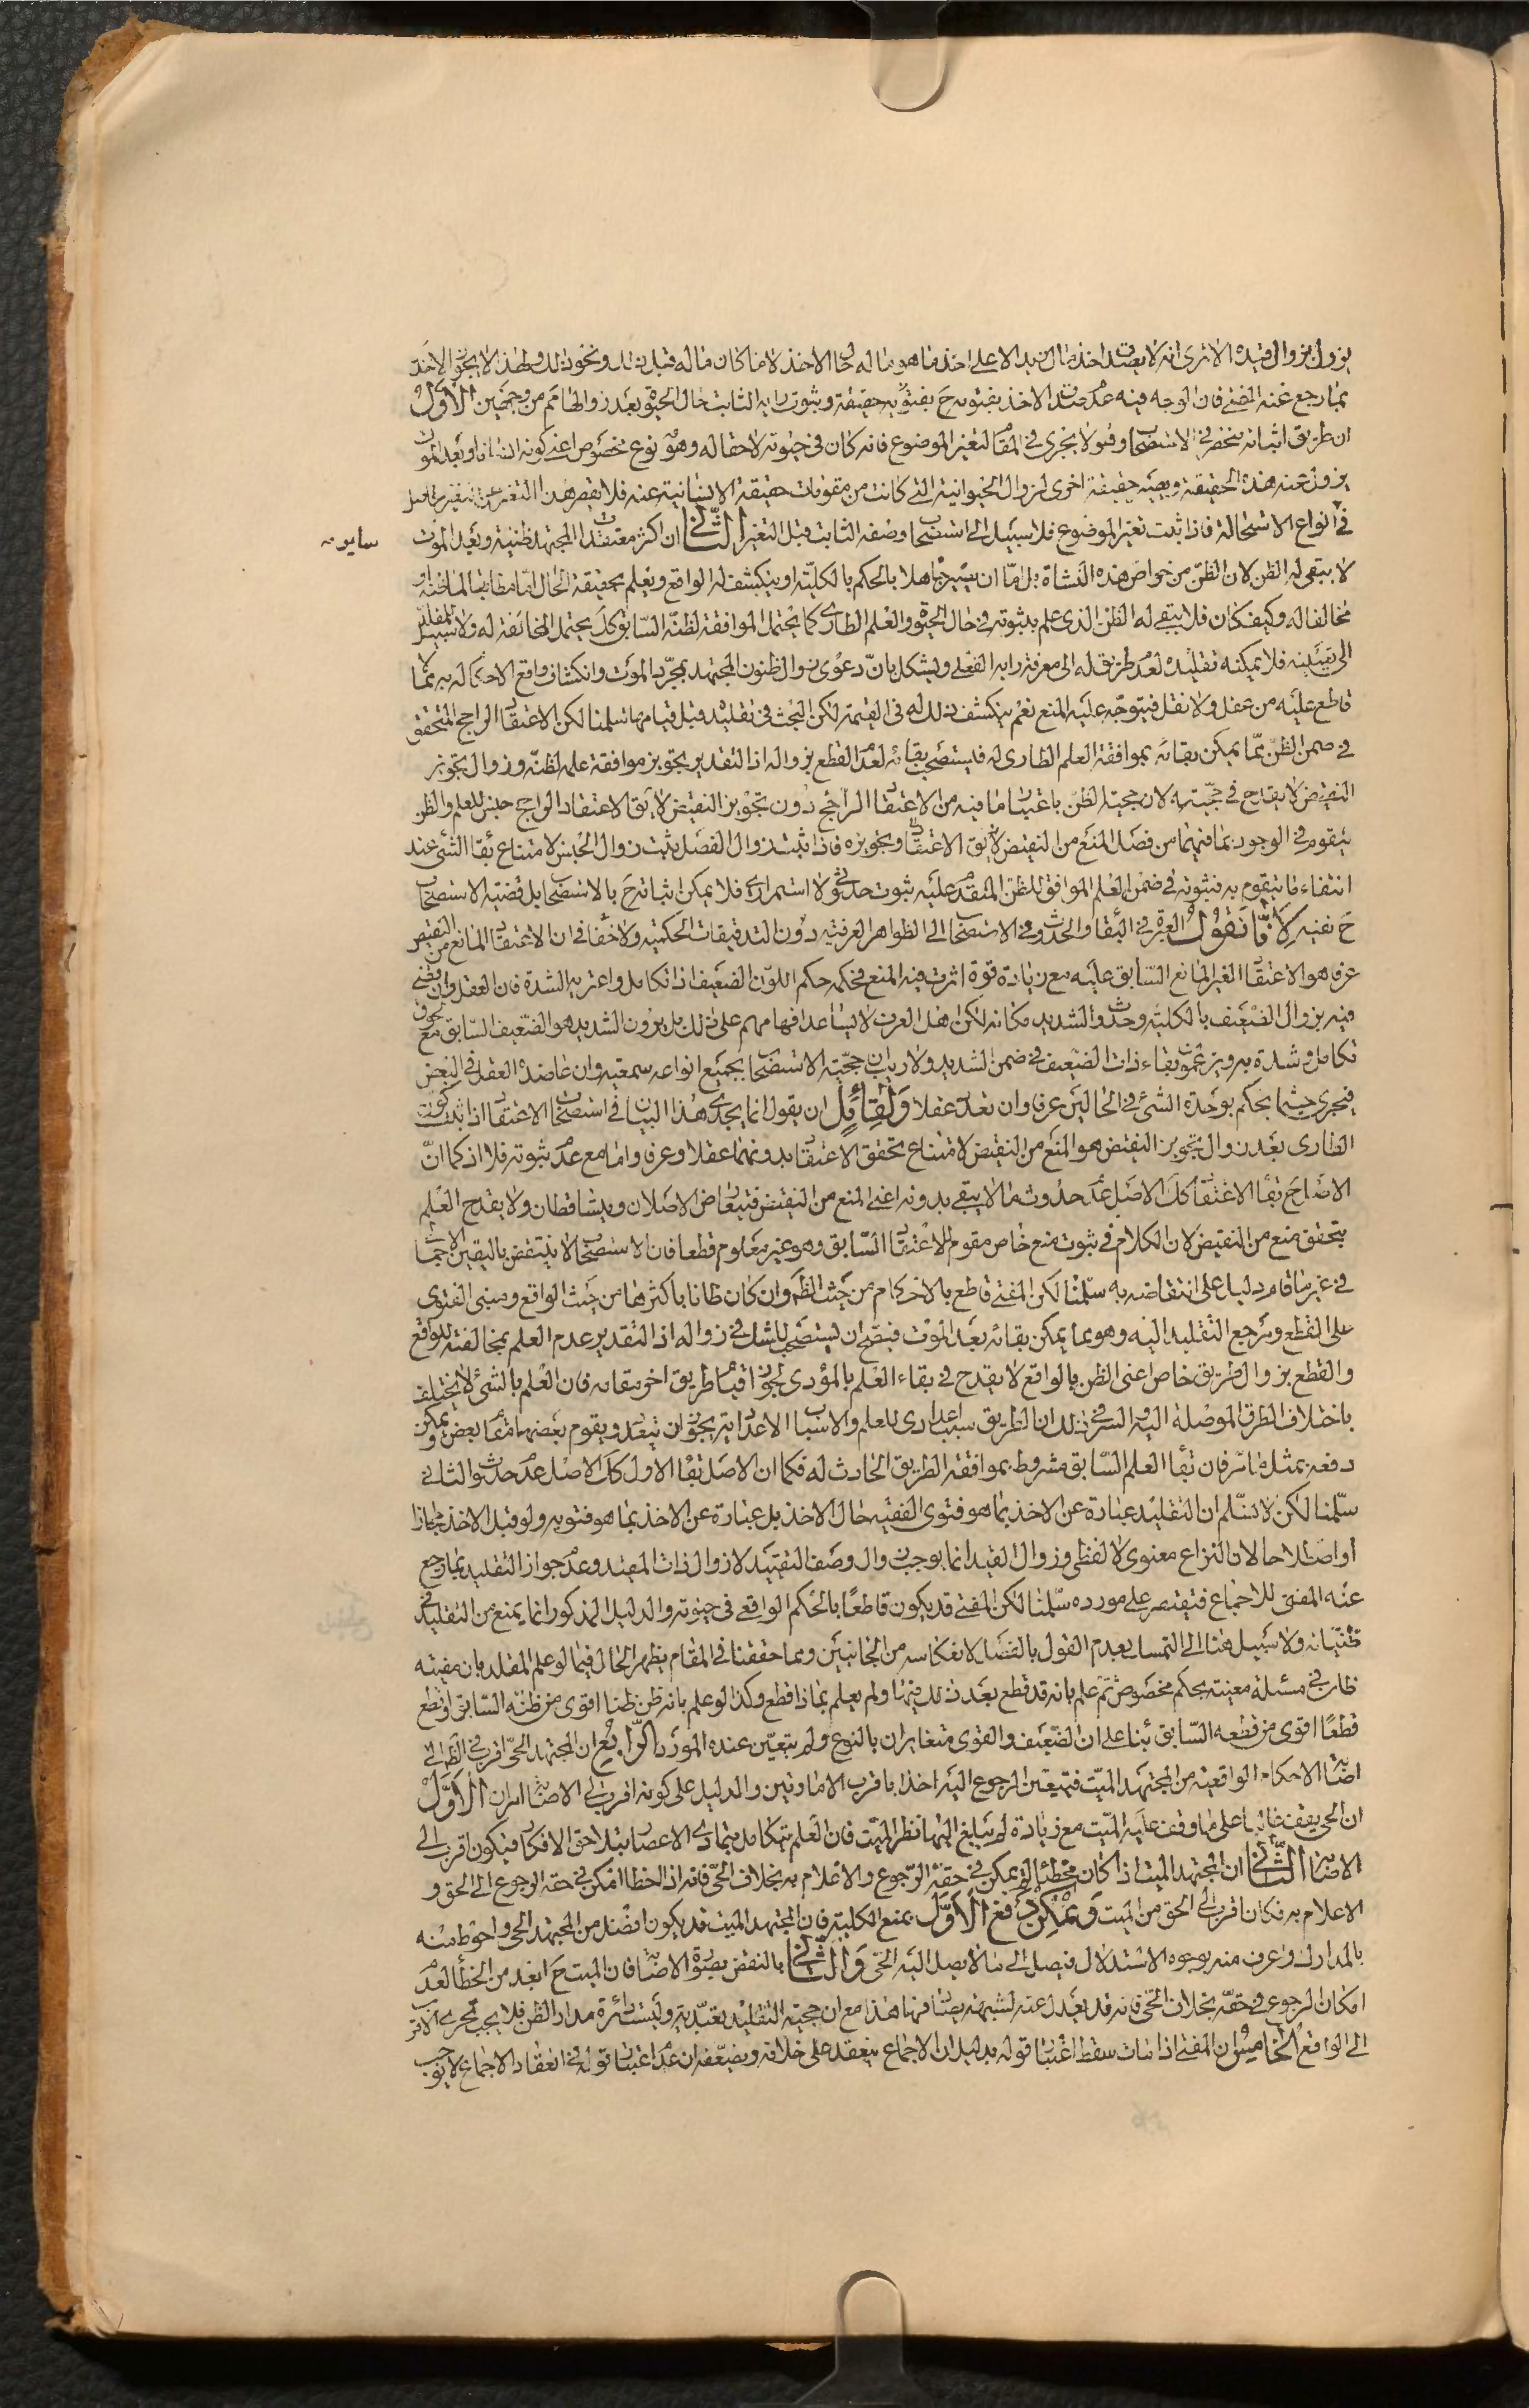 يزول بزوال قيده الا ترى انه لا يصدق اخذ مال زيد الا على اخذ ما هو ماله حال الاخذ لا ما كان ماله قبل ذلك ونحو ذلك ولهذا لا يجوز الاخذ
بما رجع عنه المفتى فان الوجه فيه عدم صدق الاخذ بفتويه ح بفتويه حقيقة وثبوت رايه الثابت حال الحيوة بعد زوالها مم من وجهين الاول
ان طريق اثباته منحصر فى الاستصحاب وهو لا يجرى فى المقام لتغير الموضوع فانه كان فى حيوته لاحقا له وهو نوع مخصوص اعنى كونه انسانا وبعد الموت
يزول عنه هذه الحقيقة ويصير حقيقة اخرى لزوال الحيوانية التى كانت من مقومات حقيقة الانسانية عنه فلا يقصر هذا التغير عن تغير
فى انواع الاستحالة فاذا ثبت تغير الموضوع فلا سبيل الى استصحاب وصفه الثابت قبل التغير الثانى ان اكثر معتقدات المجتهد ظنية وبعد الموت
سایر مه
لا يبقى له الظن لان الظن من خواص هذه النشاة بل امّا ان يصير جاهلا بالحكم بالكليّة او ينكشف له الواقع ويعلم بحقيقة الحال امّا مطابقا لما ظنّه او
مخالفا له وكيف كان فلا يبقى له الظن الذى علم بثبوته فى حال الحيوة والعلم الطارى كما يحتمل الموافقة لظنّه السابق كك يحتمل المخالفة له ولا سبيل للمقلد
الى تعيينه فلا يمكنه تقليده لعدم طريق له الى معرفة رايه الفعلى ويشكل بانّ دعوى زوال ظنون المجتهد بمجرّد الموت وانكشاف واقع الاحكام له به ممّا لا
قاطع عليه من عقل ولا نقل فيتوجّه عليه المنع نعم ينكشف ذلك له فى القيمة لكن البحث فى تقليده قبل قيامها سلمنا لكن الاعتقاد الراجح المتحقق
فى ضمن الظنّ ممّا يمكن بقائه بموافقة العلم الطارى له فليستصحب بقائه لعدم القطع بزواله اذ التقدير تجويز موافقة علمه لظنّه وزوال تجويز
النقيض لا يقدح فى حجّيته لان حجية الظنّ باعتبار ما فيه من الاعتقاد الراجح دون تجويز النقيض لا يق الاعتقاد الراجح جنس للعلم والظن
يتقوم فى الوجود بما فيهما من فصل المنع من النقيض لا يق الاعتقاد وتجويزه فاذا ثبت زوال الفصل يثبت زوال الجنس لامتناع بقاء الشئ عند
انتفاء ما يتقوم به فثبوته فى ضمن العلم الموافق للظن المتقدم عليه ثبوت حدوثى لا استمرارى فلا يمكن اثباته ح بالاستصحاب بل قضية الاستصحاب
ح نفيه لانّا نقول العبرة فى البقاء والحدوث فى الاستصحاب الى الظواهر العرفيه دون التدقيقات الحكميه ولا خفاء فى ان الاعتقاد المانع من النقيض
عرفا هو الاعتقاد الغير المانع السابق عليه مع زيادة قوة اثرت فيه المنع فحكمه حكم اللون الضعيف اذا تكامل واعتريه الشدة فان العقل وان قضى
فيه بزوال الضعيف بالكلية وحدوث الشديد مكانه لكن اهل العرف لا يساعد افهامهم على ذلك بل يرون الشديد هو الضعيف السابق مع لحوق
تكامل وشدة به ويزعمون بقاء ذات الضعيف فى ضمن الشديد ولا ريب ان حجية الاستصحاب بجميع انواعه سمعية وان عاضده العقل فى البعض
فيجرى حيثما يحكم بوحدة الشئ فى الحالين عرفا وان تعدد عقلا ولقائل ان يقول انما يجدى هذا البيان فى استصحاب الاعتقاد اذا ثبت كون
الطارى بعد زوال تجويز النقيض هو المنع من النقيض لامتناع تحقق الاعتقاد بدونهما عقلا وعرفا واما مع عدم ثبوته فلا اذ كما انّ
الاصل ح بقاء الاعتقاد كك الاصل عدم حدوث ما لا يبقى بدونه اعنى المنع من النقيض فيتعارض الاصلان ويتساقطان ولا يقدح العلم
بتحقق منع من النقيض لان الكلام فى ثبوت منع خاص مقوم للاعتقاد السابق وهو غير معلوم قطعا فان الاستصحاب لا ينتقض باليقين الاجمالى
فى غير ما قام دليل على انتقاضه به سلّمنا لكن المفتى قاطع بالاحكام من حيث الظاهر وان كان ظانا باكثرها من حيث الواقع ومبنى الفتوى
على القطع ومرجع التقليد اليه وهو مما يمكن بقائه بعد الموت فيصحّ ان يستصحب للشك فى زواله اذ التقدير عدم العلم بمخالفته للواقع
والقطع بزوال طريق خاص اعنى الظن بالواقع لا يقدح فى بقاء العلم بالمؤدى لجواز قيام طريق اخر مقامه فان العلم بالشئ لا يختلف
باختلاف الطرق الموصلة اليه والسر فى ذلك ان الطريق سبب اعدادى للعلم والاسباب الاعدادية يجوز ان يتعدد ويقوم بعضها مقام بعض ويمكن
دفعه بمثل ما مرّ فان بقاء العلم السابق مشروط بموافقة الطريق الحادث له فكما ان الاصل بقاء الاول كك الاصل عدم حدوث الثانى
سلّمنا لكن لا نسلّم ان التقليد عبارة عن الاخذ بما هو فتوى الفقيه حال الاخذ بل عبارة عن الاخذ بما هو فتويه ولو قبل الاخذ مجازا
او اصطلاحا لان النزاع معنوى لا لفظى وزوال القيد انما يوجب زوال وصف التقييد لا زوال ذات المقيد وعدم جواز التقليد بما رجع
عنه المفتى للاجماع فيقتصر على مورده سلّمنا لكن المفتى قد يكون قاطعًا بالحكم الواقعى فى حيوته والدليل المذكور انما يمنع من التقليد فى
ظنّيّاته ولا سبيل هنا الى التمسك بعدم القول بالفصل لانعكاسه من الجانبين ومما حققنا فى المقام يظهر الحال فيما لو علم المقلد بان مفتيه
ظان فى مسئلة معينة بحكم مخصوص ثمّ علم بانه قد قطع بعد ذلك فيها ولم يعلم بماذا قطع وكذا لو علم بانه ظن ظنا اقوى من ظنّه السابق او قطع
قطعًا اقوى من قطعه السابق بناء على ان الضعيف والقوى متغايران بالنوع ولم يتعيّن عنده المورد الرّابع ان المجتهد الحىّ اقرب فى الظن الى
اصابة الاحكام الواقعية من المجتهد الميّت فيتعين الرجوع اليه اخذا باقرب الامارتين والدليل على كونه اقرب الى الاصابة امران الاوّل
ان الحى يقف غالبا على ما وقف عليه الميّت مع زيادة لم يبلغ اليها نظر الميّت فان العلم يتكامل بتمادى الاعصار بتلاحق الافكار فيكون اقرب الى
الاصابة الثانى ان المجتهد الميت اذا كان مخطئا لم يمكن فى حقه الرجوع والاعلام به بخلاف الحىّ فانه اذا اخطا امكن فى حقه الرجوع الى الحق و
الاعلام به فكان اقرب الى الحق من الميت ويمكن دفع الاوّل بمنع الكلية فان المجتهد الميت قد يكون افضل من المجتهد الحى واحوط منه
بالمدارك واعرف منه بوجوه الاستدلال فيصل الى ما لا يصل اليه الحى والثانى بالنقض بصورة الاصابة فان الميت ح ابعد من الخطأ لعدم
امكان الرجوع فى حقّه بخلاف الحى فانه قد يعدل عنه لشبهة يصادفها هذا مع ان حجية التقليد تعبّدية وليست دائرة مدار الظن فلا يجب تحرى الاقرب
الى الواقع الخامس ان المفتى اذا مات سقط اعتبار قوله بدليل ان الاجماع ينعقد على خلافه ويضعّفه ان عدم اعتبار قوله فى انعقاد الاجماع لا يوجب